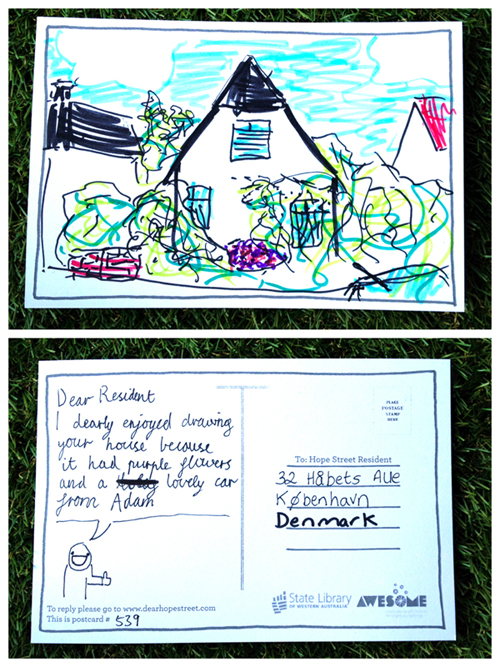 Dear Resident
I dearly enjoyed drawing
your house because
it had purple flowers
and a lovely car
from Adam
To reply please go to www.dearhopestreet.com
This is postcard # 539
PLACE
POSTAGE
STAMP
HERE
To: Hope Street Resident
32 Håbets Alle
København
Denmark
State Library
OF WESTERN AUSTRALIA
AWESOME